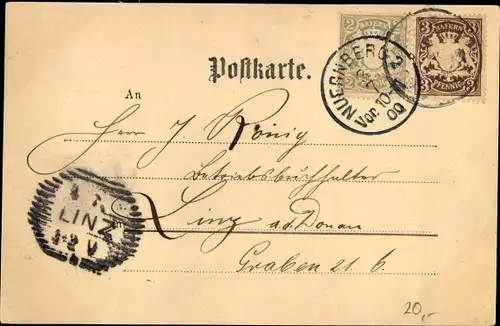 2 BAYERN 2
3 BAYERN 3
3 PFENNIG 3
NUERNBERG 2
Vor. 10-11
00
Postkarte.
An
Herrn J. König
Betriebsbuchhalter
Linz a. d. Donau
Graben 21. b.
LINZ
20,-